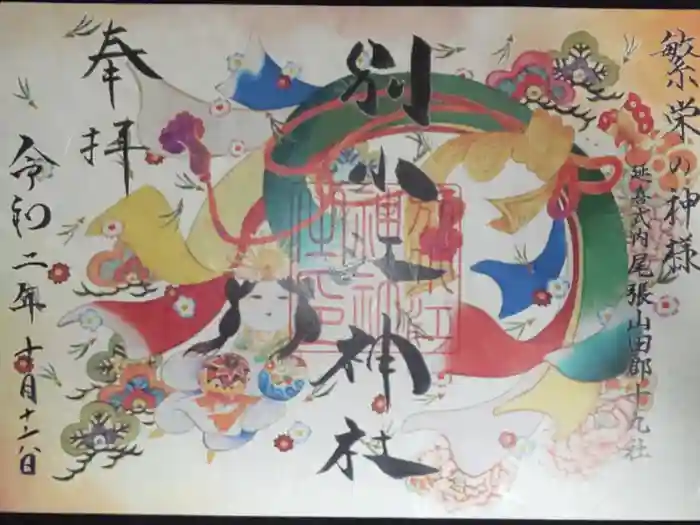 繁栄の神様
延喜式内尾張山田郡十九社
別小江神社
奉拝
令和二年十月十六日